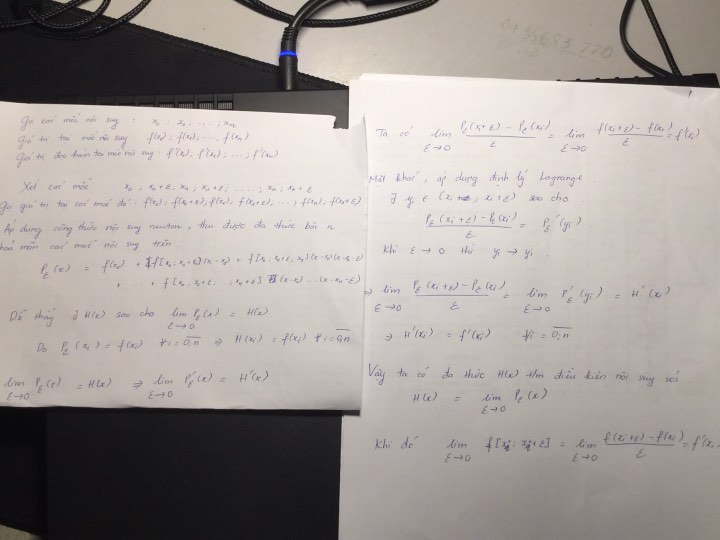 Có các mốc nội suy : x₀ ; x₁ ; .... ; xₙ
Giá trị tại mốc nội suy f(x₀) ; f(x₁) ; ... , f(xₙ)
Giá trị đạo hàm tại mốc nội suy : f'(x₀) ; f'(x₁) ; ... ; f'(xₙ)
Xét các mốc x₀ ; x₀+ε ; x₁ , x₁+ε ; .... ; xₙ ; xₙ+ε
Có giá trị tại các mốc đó : f(x₀) ; f(x₀+ε) ; f(x₁) ; f(x₁+ε) ... ; f(xₙ) ; f(xₙ+ε)
Áp dụng công thức nội suy newton , thu được đa thức bậc n
thoả mãn các mốc nội suy trên .
P_ε(x) = f(x₀) + f[x₀ ; x₀+ε](x-x₀) + f[x₀ ; x₀+ε ; x₁](x-x₀)(x-x₀-ε)
+ ... + f[x₀ ; x₀+ε ... ; xₙ+ε] (x-x₀) ... (x-xₙ-ε)
Dễ thấy ∃ H(x) sao cho lim_{ε→0} P_ε(x) = H(x)
Do P_ε(xᵢ) = f(xᵢ) ∀i = 0,n ⇒ H(xᵢ) = f(xᵢ) ∀i = 0,n
lim_{ε→0} P_ε(x) = H(x) ⇒ lim_{ε→0} P'_ε(x) = H'(x)
0935683 770
1
Ta có lim_{ε→0} (P_ε(xᵢ+ε) - P_ε(xᵢ))/ε = lim_{ε→0} (f(xᵢ+ε) - f(xᵢ))/ε = f'(xᵢ)
Mặt khác , áp dụng định lý Lagrange .
∃ yᵢ ∈ (xᵢ , xᵢ+ε) sao cho
(P_ε(xᵢ+ε) - P_ε(xᵢ))/ε = P'_ε(yᵢ) .
Khi ε → 0 thì yᵢ → yᵢ .
⇒ lim_{ε→0} (P_ε(xᵢ+ε) - P_ε(xᵢ))/ε = lim_{ε→0} P'_ε(yᵢ) = H'(xᵢ)
⇒ H'(xᵢ) = f'(xᵢ) ∀i = 0,n
Vậy ta có đa thức H(x) t/m điều kiện nội suy với
H(x) = lim_{ε→0} P_ε(x)
Khi đó lim_{ε→0} f[xᵢ ; xᵢ+ε] = lim_{ε→0} (f(xᵢ+ε) - f(xᵢ))/ε = f'(xᵢ